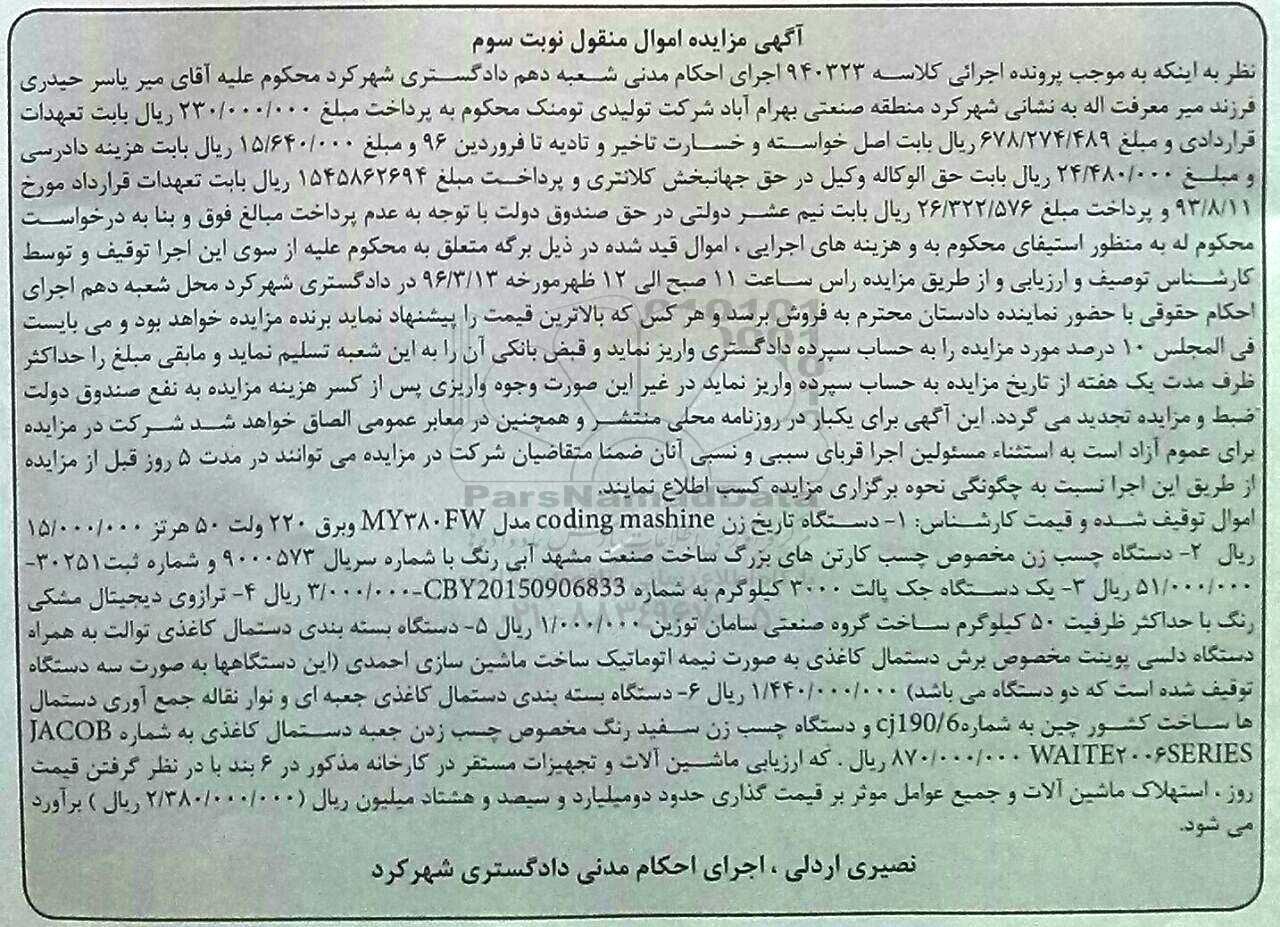 آگهی مزایده اموال منقول نوبت سوم
نظر به اینکه به موجب پرونده اجرائی کلاسه ۹۴۰۳۲۳ اجرای احکام مدنی شعبه دهم دادگستری شهرکرد محکوم علیه آقای میر یاسر حیدری
فرزند میر معرفت اله به نشانی شهرکرد منطقه صنعتی بهرام آباد شرکت تولیدی تومنک محکوم به پرداخت مبلغ ۲۳۰/۰۰۰/۰۰۰ ریال بابت تعهدات
قراردادی و مبلغ ۶۷۸/۲۷۴/۴۸۹ ریال بابت اصل خواسته و خسارت تاخیر و تادیه تا فروردین ۹۶ و مبلغ ۱۵/۶۴۰/۰۰۰ ریال بابت هزینه دادرسی
و مبلغ ۲۴/۴۸۰/۰۰۰ ریال بابت حق الوکاله وکیل در حق جهانبخش کلانتری و پرداخت مبلغ ۱۵۴۵۸۶۲۶۹۴ ریال بابت تعهدات قرارداد مورخ
۹۳/۸/۱۱ و پرداخت مبلغ ۲۶/۳۲۲/۵۷۶ ریال بابت نیم عشر دولتی در حق صندوق دولت با توجه به عدم پرداخت مبالغ فوق و بنا به درخواست
محکوم له به منظور استیفای محکوم به و هزینه های اجرایی ، اموال قید شده در ذیل برگه متعلق به محکوم علیه از سوی این اجرا توقیف و توسط
کارشناس توصیف و ارزیابی و از طریق مزایده راس ساعت ۱۱ صبح الی ۱۲ ظهرمورخه ۹۶/۳/۱۳ در دادگستری شهرکرد محل شعبه دهم اجرای
احکام حقوقی با حضور نماینده دادستان محترم به فروش برسد و هر کس که بالاترین قیمت را پیشنهاد نماید برنده مزایده خواهد بود و می بایست
فی المجلس ۱۰ درصد مورد مزایده را به حساب سپرده دادگستری واریز نماید و قبض بانکی آن را به این شعبه تسلیم نماید و مابقی مبلغ را حداکثر
ظرف مدت یک هفته از تاریخ مزایده به حساب سپرده واریز نماید در غیر این صورت وجوه واریزی پس از کسر هزینه مزایده به نفع صندوق دولت
ضبط و مزایده تجدید می گردد. این آگهی برای یکبار در روزنامه محلی منتشر و همچنین در معابر عمومی الصاق خواهد شد شرکت در مزایده
برای عموم آزاد است به استثناء مسئولین اجرا قربای سببی و نسبی آنان ضمنا متقاضیان شرکت در مزایده می توانند در مدت ۵ روز قبل از مزایده
از طریق این اجرا نسبت به چگونگی نحوه برگزاری مزایده کسب اطلاع نمایند.
ParsNamadData
اموال توقیف شده و قیمت کارشناس: ۱- دستگاه تاریخ زن coding mashine مدل MY۳۸۰FW وبرق ۲۲۰ ولت ۵۰ هرتز ۱۵/۰۰۰/۰۰۰
ریال ۲- دستگاه چسب زن مخصوص چسب کارتن های بزرگ ساخت صنعت مشهد آبی رنگ با شماره سریال ۹۰۰۰۵۷۳ و شماره ثبت۳۰۲۵۱-
۵۱/۰۰۰/۰۰۰ ریال ۳- یک دستگاه جک پالت ۳۰۰۰ کیلوگرم به شماره CBY20150906833-۳/۰۰۰/۰۰۰ ریال ۴- ترازوی دیجیتال مشکی
رنگ با حداکثر ظرفیت ۵۰ کیلوگرم ساخت گروه صنعتی سامان توزین ۱/۰۰۰/۰۰۰ ریال ۵- دستگاه بسته بندی دستمال کاغذی توالت به همراه
دستگاه دلسی پوینت مخصوص برش دستمال کاغذی به صورت نیمه اتوماتیک ساخت ماشین سازی احمدی (این دستگاهها به صورت سه دستگاه
توقیف شده است که دو دستگاه می باشد) ۱/۴۴۰/۰۰۰/۰۰۰ ریال ۶- دستگاه بسته بندی دستمال کاغذی جعبه ای و نوار نقاله جمع آوری دستمال
ها ساخت کشور چین به شمارهcj190/6 و دستگاه چسب زن سفید رنگ مخصوص چسب زدن جعبه دستمال کاغذی به شماره JACOB
WAITE۲۰۰۶SERIES ۸۷۰/۰۰۰/۰۰۰ ریال . که ارزیابی ماشین آلات و تجهیزات مستقر در کارخانه مذکور در ۶ بند با در نظر گرفتن قیمت
روز ، استهلاک ماشین آلات و جمیع عوامل موثر بر قیمت گذاری حدود دومیلیارد و سیصد و هشتاد میلیون ریال (۲/۳۸۰/۰۰۰/۰۰۰ ریال ) برآورد
می شود.
نصیری اردلی ، اجرای احکام مدنی دادگستری شهرکرد